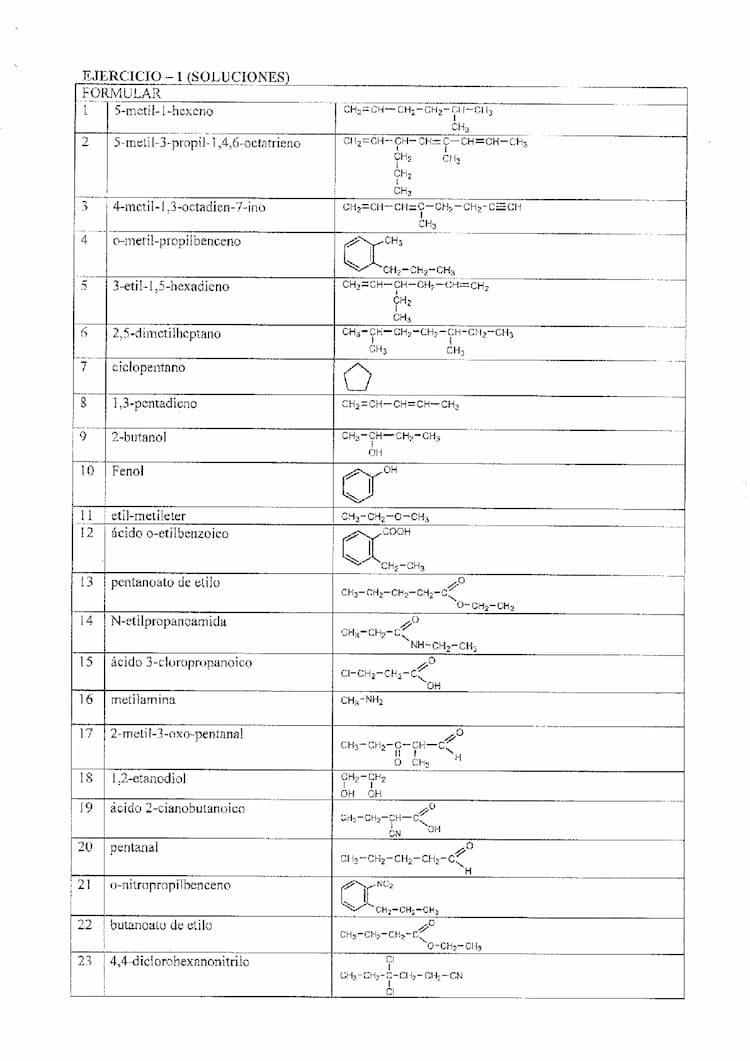 EJERCICIO – 1 (SOLUCIONES)
FORMULAR
1 5-metil-1-hexeno CH2=CH−CH2−CH2−CH−CH3
CH3
2 5-metil-3-propil-1,4,6-octatrieno CH2=CH−CH−CH=C−CH=CH−CH3
CH2 CH3
CH2
CH3
3 4-metil-1,3-octadien-7-ino CH2=CH−CH=C−CH2−CH2-C≡CH
CH3
4 o-metil-propilbenceno CH3
CH2−CH2−CH3
5 3-etil-1,5-hexadieno CH2=CH−CH−CH2−CH=CH2
CH2
CH3
6 2,5-dimetilheptano CH3−CH−CH2−CH2−CH−CH2−CH3
CH3 CH3
7 ciclopentano
8 1,3-pentadieno CH2=CH−CH=CH−CH3
9 2-butanol CH3−CH−CH2−CH3
OH
10 Fenol OH
11 etil-metileter CH3−CH2−O−CH3
12 ácido o-etilbenzoico COOH
CH2−CH3
13 pentanoato de etilo O
CH3−CH2−CH2−CH2−C
O−CH2−CH3
14 N-etilpropanoamida O
CH3−CH2−C
NH−CH2−CH3
15 ácido 3-cloropropanoico O
Cl−CH2−CH2−C
OH
16 metilamina CH3−NH2
17 2-metil-3-oxo-pentanal O
CH3−CH2−C−CH−C
O CH3 H
18 1,2-etanodiol CH2−CH2
OH OH
19 ácido 2-cianobutanoico O
CH3−CH2−CH−C
CN OH
20 pentanal O
CH3−CH2−CH2−CH2−C
H
21 o-nitropropilbenceno NO2
CH2−CH2−CH3
22 butanoato de etilo O
CH3−CH2−CH2−C
O−CH2−CH3
23 4,4-diclorohexanonitrilo Cl
CH3−CH2−C−CH2−CH2−CN
Cl